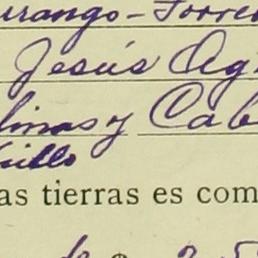 urango-Torre
Jesús Ag
linas y Cab
uillo
as tierras es com
de $ 2.5